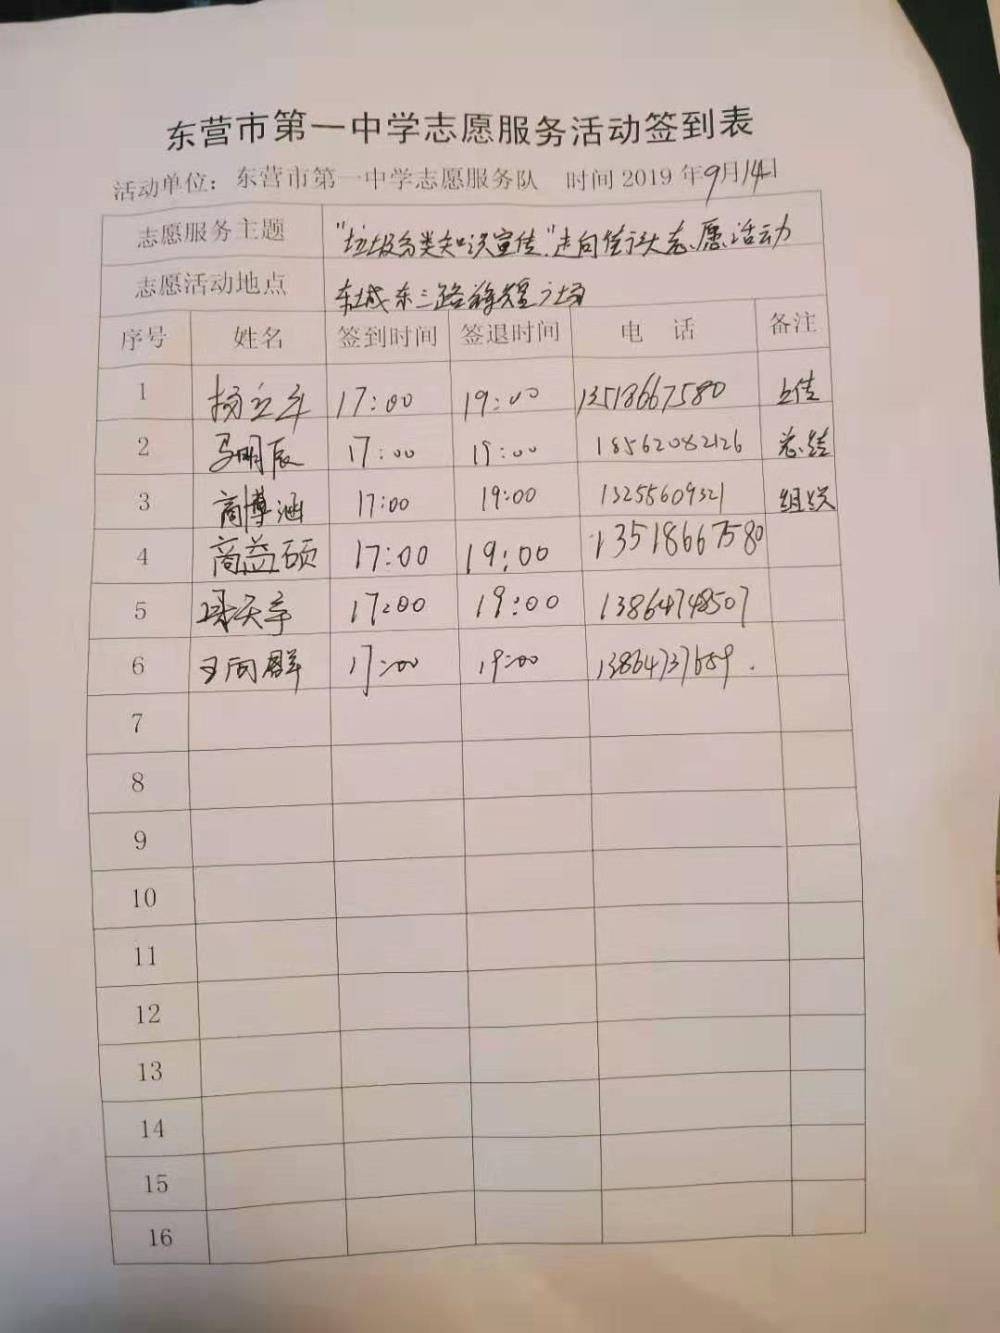 东营市第一中学志愿服务活动签到表
活动单位：东营市第一中学志愿服务队 时间 2019 年9月14日
志愿服务主题 "垃圾分类知识宣传"走向街头志愿活动
志愿活动地点 东城东三路辉煌广场
序号 姓名 签到时间 签退时间 电 话 备注
1 杨立年 17:00 19:00 13518667580 上传
2 马明辰 17:00 19:00 18562082126 总结
3 商博涵 17:00 19:00 13255609321 组织
4 商益硕 17:00 19:00 13518667580
5 天宇 17:00 19:00 13864748507
6 王向群 17:00 19:00 13864737689
7
8
9
10
11
12
13
14
15
16